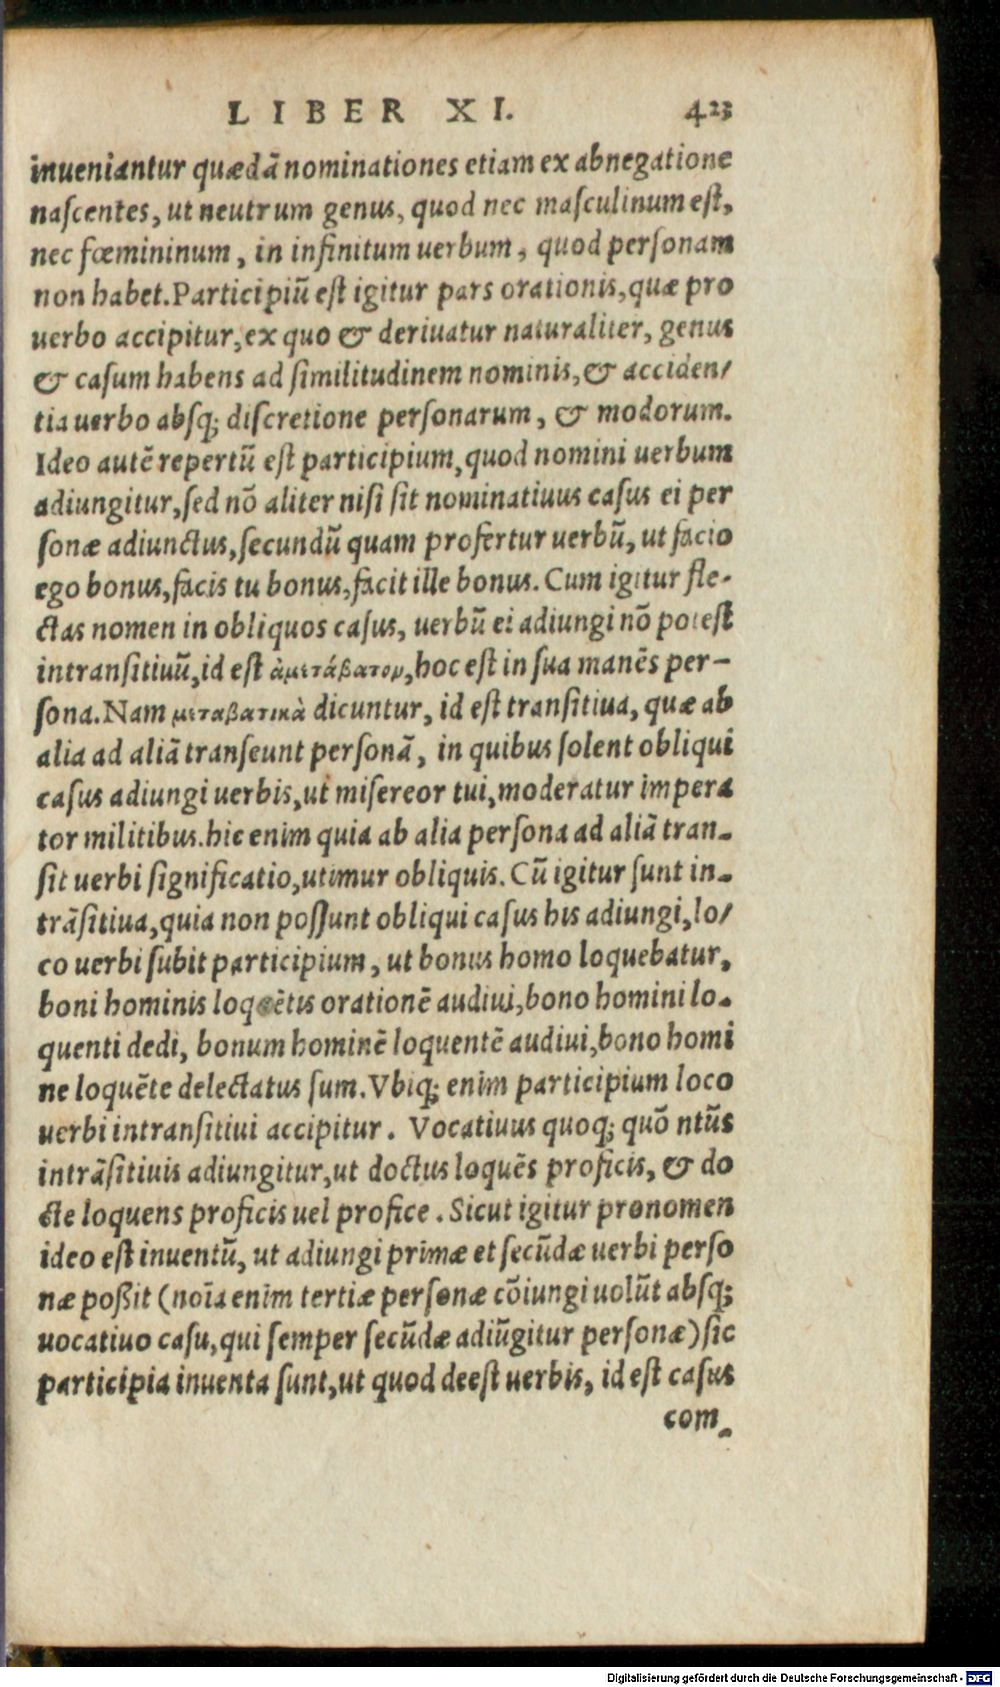 LIBER XI. 423
inueniantur quædã nominationes etiam ex abnegatione
nascentes, ut neutrum genus, quod nec masculinum est,
nec fœmininum, in infinitum uerbum, quod personam
non habet. Participiũ est igitur pars orationis, quæ pro
uerbo accipitur, ex quo & deriuatur naturaliter, genus
& casum habens ad similitudinem nominis, & acciden/
tia uerbo absq; discretione personarum, & modorum.
Ideo autẽ repertũ est participium, quod nomini uerbum
adiungitur, sed nõ aliter nisi sit nominatiuus casus ei per
sonæ adiunctus, secundũ quam profertur uerbũ, ut facio
ego bonus, facis tu bonus, facit ille bonus. Cum igitur fle-
ctas nomen in obliquos casus, uerbũ ei adiungi nõ potest
intransitiuũ, id est ἀμετάβατον, hoc est in sua manẽs per-
sona. Nam μεταβατικὰ dicuntur, id est transitiua, quæ ab
alia ad aliã transeunt personã, in quibus solent obliqui
casus adiungi uerbis, ut misereor tui, moderatur impera
tor militibus. hic enim quia ab alia persona ad aliã tran-
sit uerbi significatio, utimur obliquis. Cũ igitur sunt in-
trãsitiua, quia non possunt obliqui casus his adiungi, lo/
co uerbi subit participium, ut bonus homo loquebatur,
boni hominis loquẽtis orationẽ audiui, bono homini lo-
quenti dedi, bonum hominẽ loquentẽ audiui, bono homi
ne loquẽte delectatus sum. Vbiq; enim participium loco
uerbi intransitiui accipitur. Vocatiuus quoq; quõ ntũs
intrãsitiuis adiungitur, ut doctus loquẽs proficis, & do
cte loquens proficis uel profice. Sicut igitur pronomen
ideo est inuentũ, ut adiungi primæ et secũdæ uerbi perso
næ poßit (noĩa enim tertiæ personæ cõiungi uolũt absq;
uocatiuo casu, qui semper secũdæ adiũgitur personæ) sic
participia inuenta sunt, ut quod deest uerbis, id est casus
com-
Digitalisierung gefördert durch die Deutsche Forschungsgemeinschaft - DFG